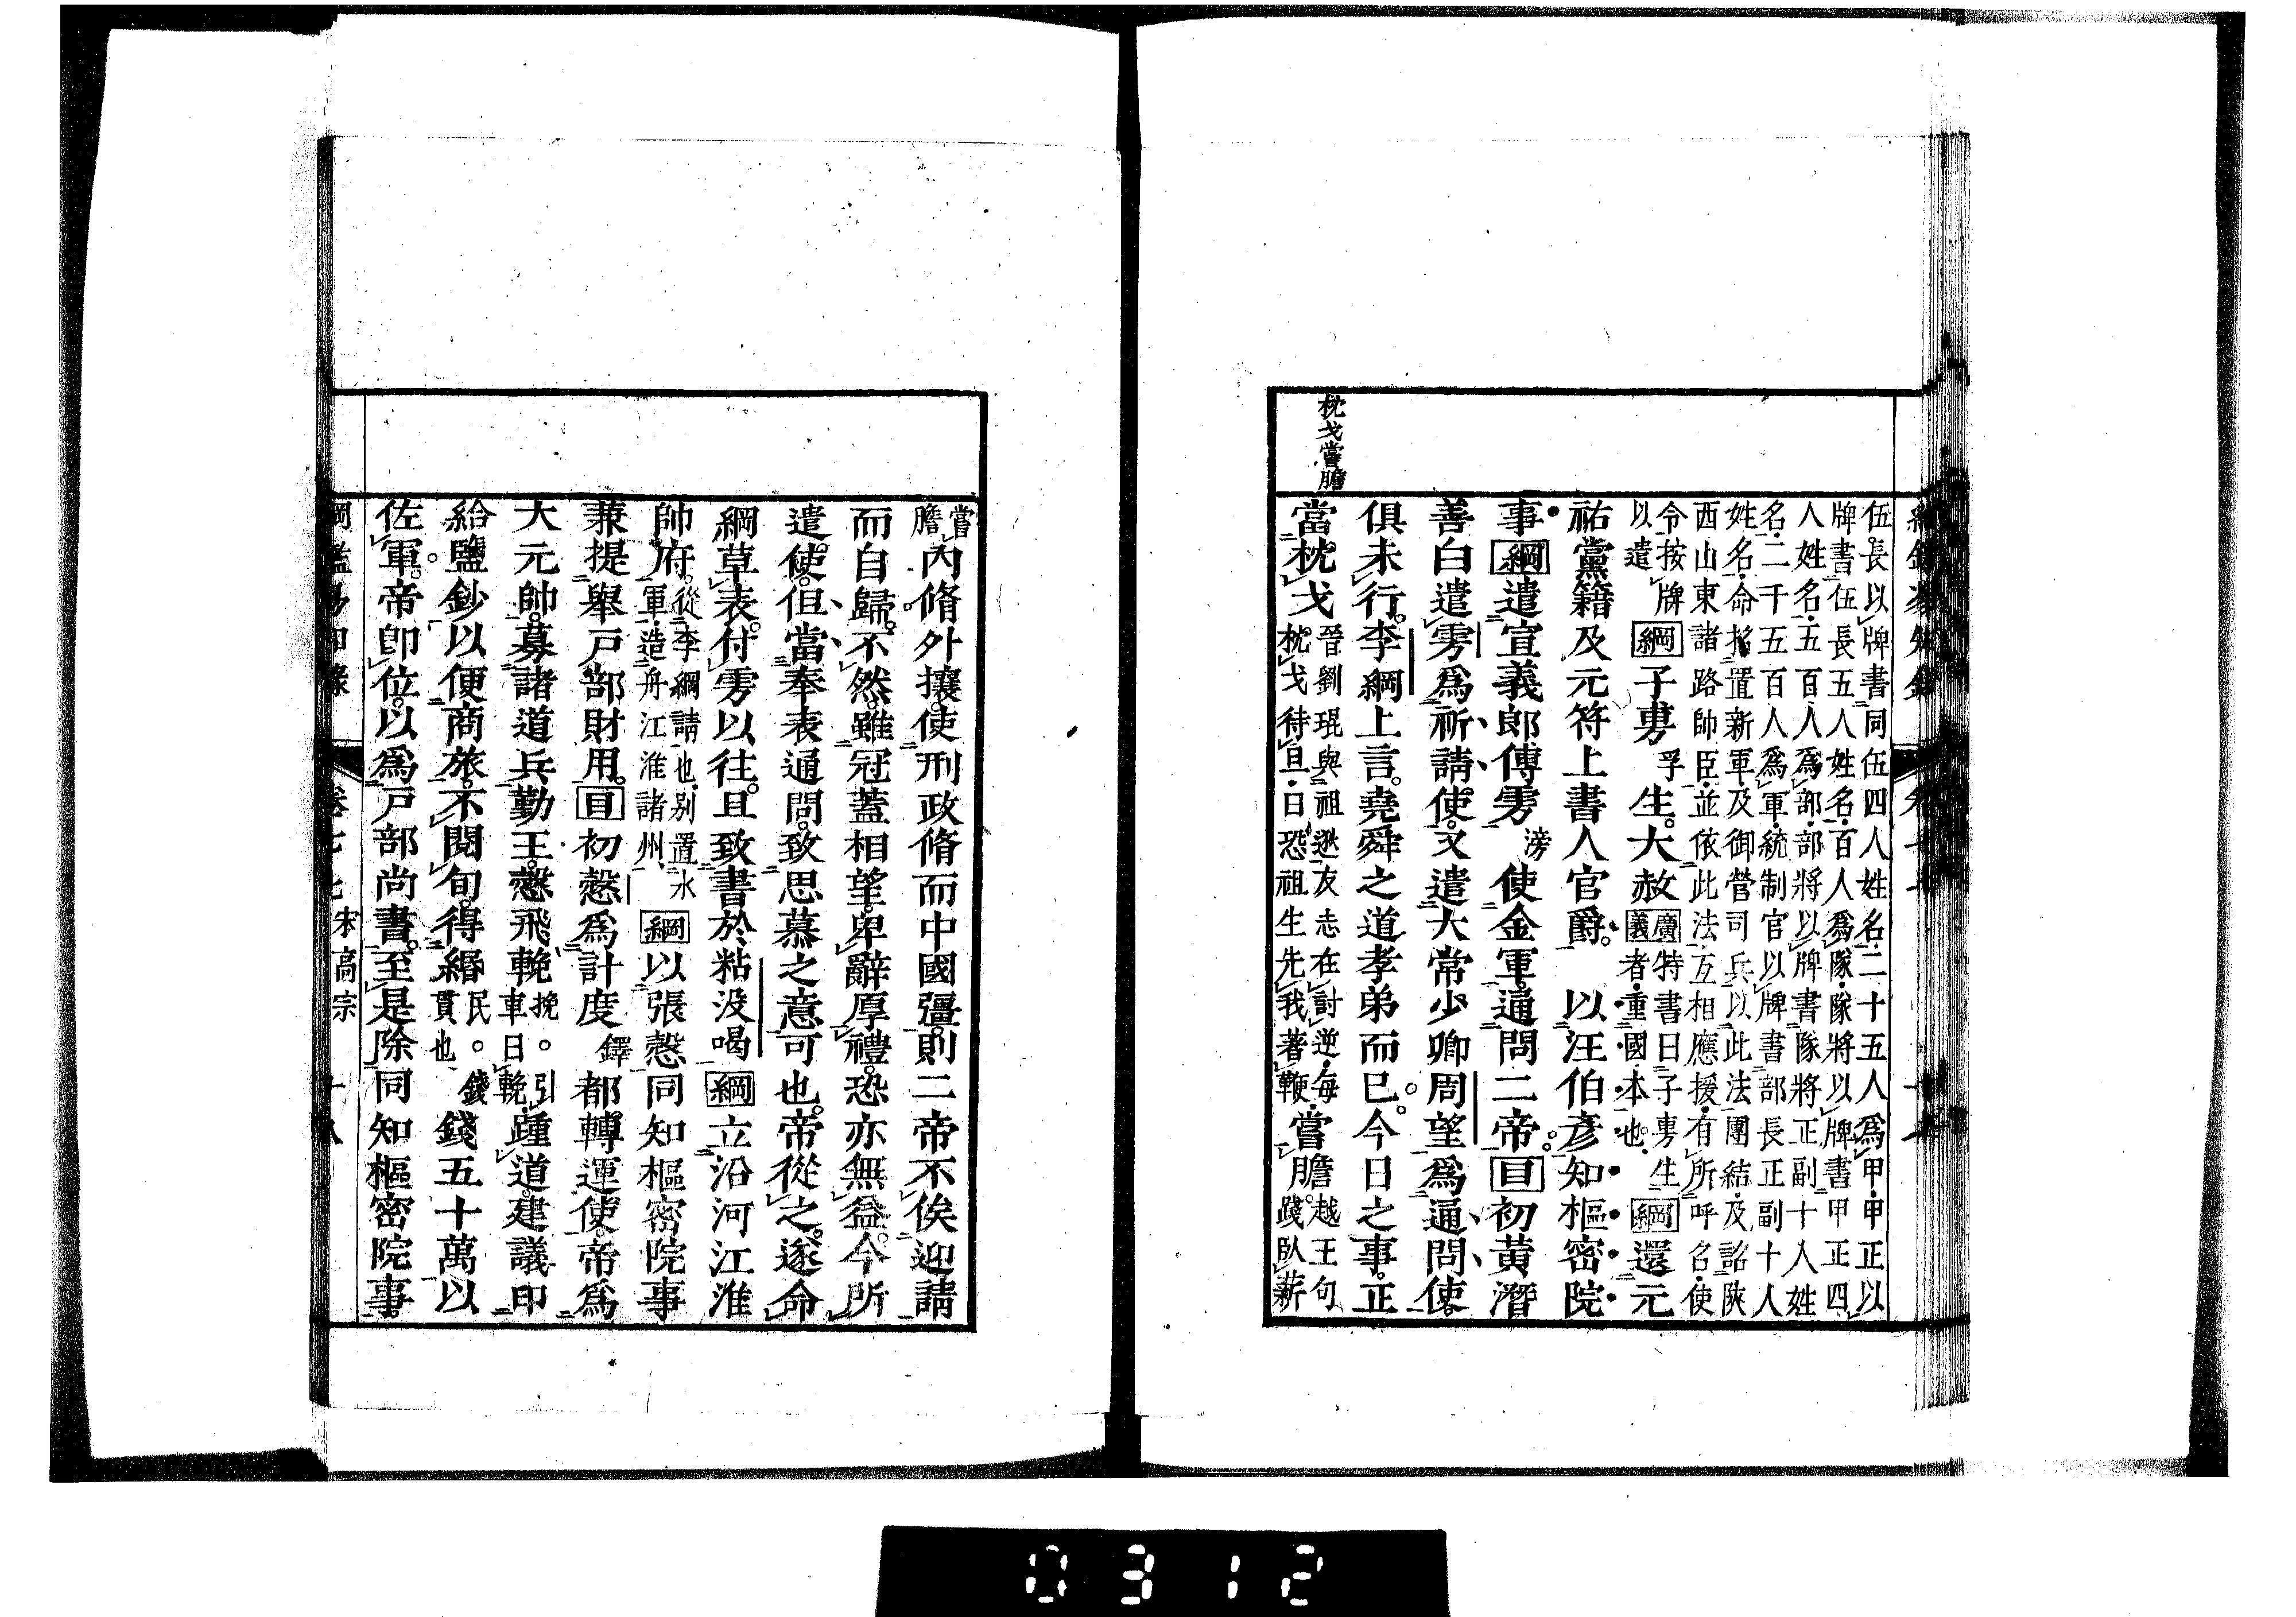 枕戈嘗膽
伍長以牌書同伍四人姓名二十五人爲甲甲正以
牌書伍長五人姓名百人爲隊隊將以牌書甲正四
人姓名五百人爲部部將以牌書隊將正副十人姓
名二千五百人爲軍統制官以牌書部長正副十人
姓名命招置新軍及御營司兵以此法團結及詔陝
西山東諸路帥臣並依此法互相應援有所呼召使
令按牌
以遣
綱子旉孚生大赦廣義特書曰子旉生者重國本也綱還元
祐黨籍及元符上書人官爵 以汪伯彥知樞密院
事綱遣宣義郎傅雱滂使金軍通問二帝目初黃潛
善白遣雱爲祈請使又遣大常少卿周望爲通問使
俱未行李綱上言堯舜之道孝弟而已今日之事正
當枕戈晉劉琨與祖逖友志在討逆每枕戈待旦曰恐祖生先我著鞭嘗膽越王句踐臥薪
嘗膽內脩外攘使刑政脩而中國彊則二帝不俟迎請
而自歸不然雖冠蓋相望卑辭厚禮恐亦無益今所
遣使但當奉表通問致思慕之意可也帝從之遂命
綱草表付雱以往且致書於粘没喝綱立沿河江淮
帥府從李綱請也別置水軍造舟江淮諸州綱以張慤同知樞密院事
兼提舉戶部財用目初慤爲計度鐸都轉運使帝爲
大元帥募諸道兵勤王慤飛輓挽。引車曰輓踵道建議印
給鹽鈔以便商旅不閱旬得緡民。錢貫也錢五十萬以
佐軍帝卽位以爲戶部尚書至是除同知樞密院事
卷七七 宋高宗 十八
0312